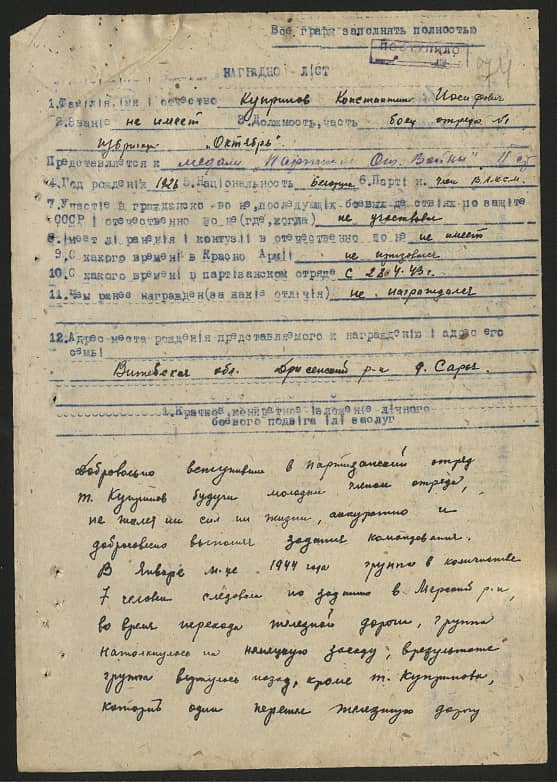 Все графы заполнять полностью
ПОСТУПИЛО
74
НАГРАДНО Л|СТ
1. Фам|л|я, |мя | отчество Куприянов Константин Иосифович
2. Зван|е не имеет 3. Должность, часть боец отряда №1
избригады "Октябрь".
Представляется к медали "Партизану От. Войны" II ст
4. Год рожден|я 1926 5. Нац|ональность Белорус 6. Парт| н. член ВЛКСМ.
7. Участ|е в гражданско во не, последующ|х боевых де ств|ях по защ|те
СССР | отечественно во не (где, когда) не участвовал
8. |меет л| ранен|я | контуз|| в отечественно во не не имеет
9. С какого времен| в Красно Арм|| не призывался
10. С какого времен| в парт|занском отряде С 28.4.43 г.
11. Чем ранее награжден (за как|е отл|ч|я) не награждался
12. Адрес места рожден|я представляемого к награжден|ю | адрес его
семь|
Витебская обл. Дриссенский р-н д. Сарья
1. Краткое, конкратное |зложен|е л|чного
боевого подв|га |л| заслуг
Добровольно вступивши в партизанский отряд
т. Куприянов будучи молодым членом отряда,
не жалея ни сил ни жизни, аккуратно и
добросовестно выполнял задания командования.
В Январе м-це 1944 года группа в количестве
7 человек следовала по заданию в Мерский р-н,
во время перехода железной дороги, группа
натолкнулась на немецкую засаду, в результате
группа вернулась назад, кроме т. Куприянова,
который один перешел железную дорогу